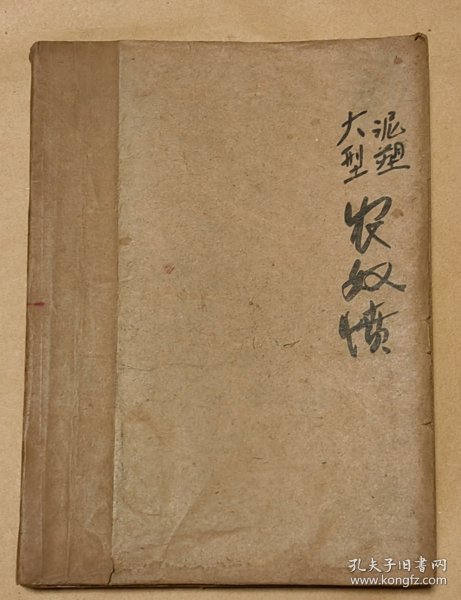 大型
泥塑
农奴愤
孔夫子旧书网
www.kongfz.com